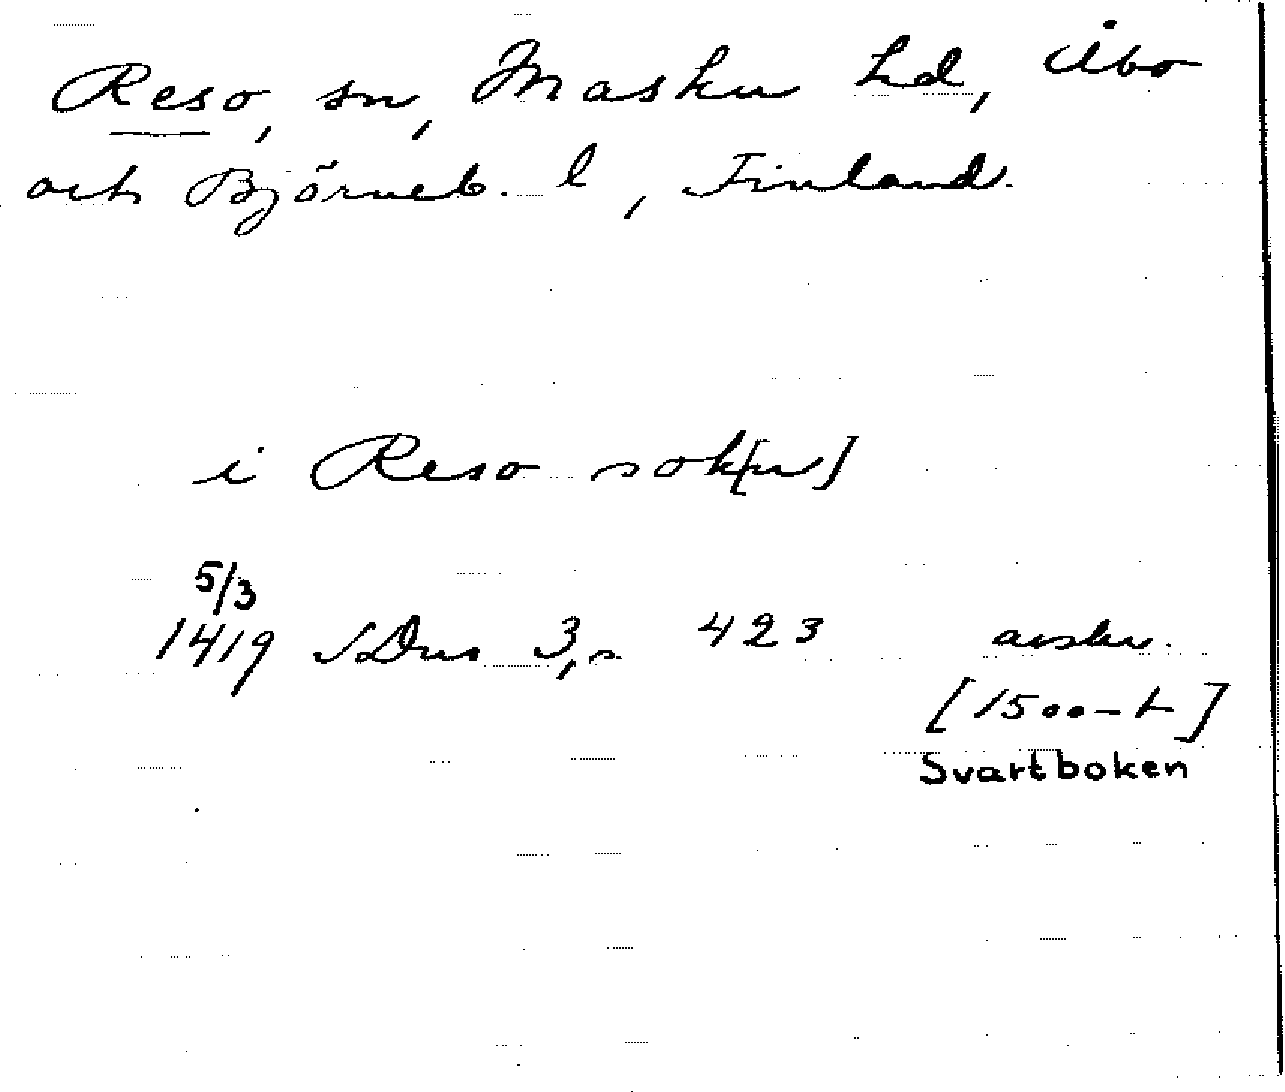 Reso, sn, Masku hd, Åbo
och Björneb. l, Finland.
i Reso sok[n]
5/3
1419 SDns 3, s 423 avskr.
[1500-t]
Svartboken